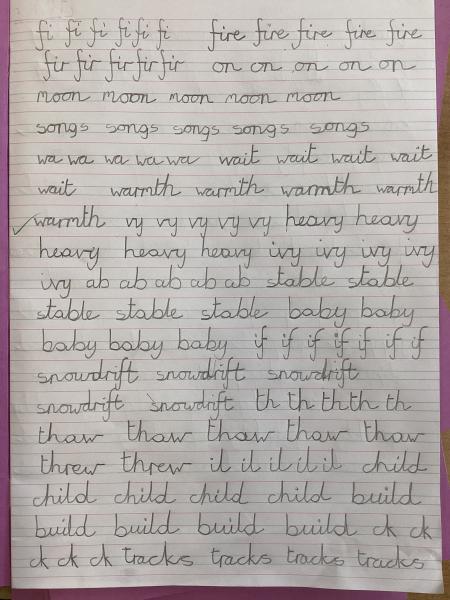 fi fi fi fi fi fi fire fire fire fire fire
fir fir fir fir fir on on on on on
moon moon moon moon moon
songs songs songs songs songs
wa wa wa wa wa wait wait wait wait
wait warmth warmth warmth warmth
warmth vy vy vy vy vy heavy heavy
heavy heavy heavy ivy ivy ivy ivy
ivy ab ab ab ab ab stable stable
stable stable stable baby baby
baby baby baby if if if if if if if
snowdrift snowdrift snowdrift
snowdrift snowdrift th th th th th
thaw thaw thaw thaw thaw
threw threw il il il il il child
child child child child build
build build build build ck ck
ck ck ck tracks tracks tracks tracks